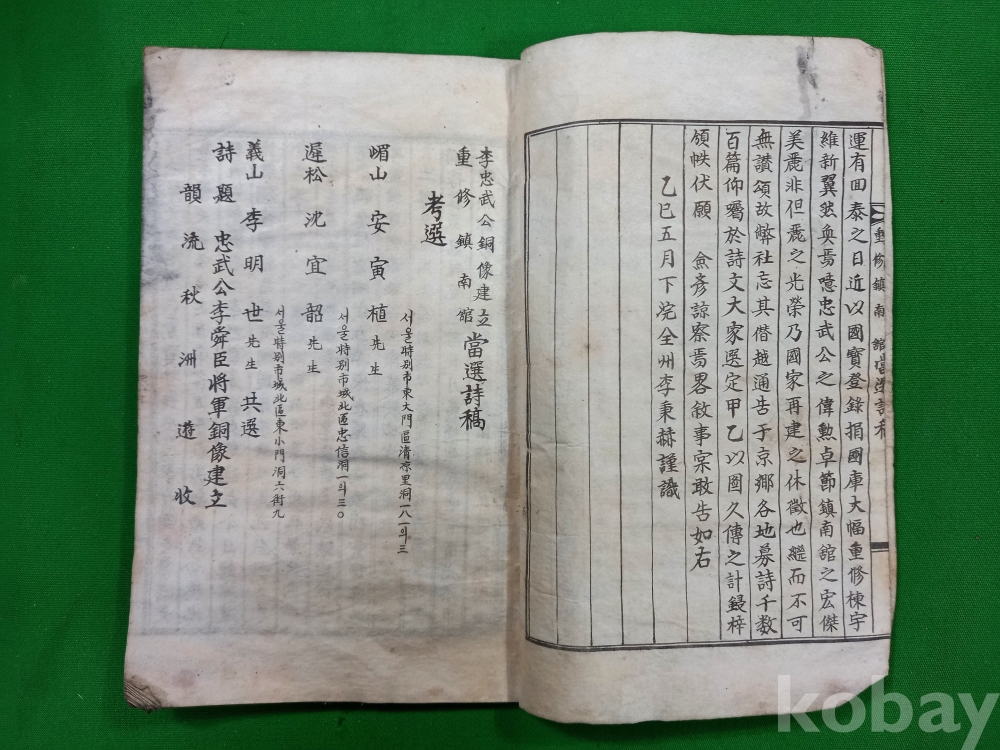 運有回泰之日近以國寶登錄捐國庫大幅重修棟宇
維新翼然奐焉噫忠武公之偉勳卓節鎮南舘之宏傑
美麗非但麗之光榮乃國家再建之休徵也繼而不可
無讚頌故弊社忘其僭越通告于京鄉各地募詩千數
百篇仰囑於詩文大家選定甲乙以圖久傳之計鋟梓
領帙伏願 僉彥諒察焉畧敘事宲敢告如右
乙巳五月下浣全州李秉赫謹識
重修鎮南舘當選詩稿
李忠武公銅像建立
重修鎮南舘
當選詩稿
考選
서울特別市東大門區清凉里洞一八一의三
嵋山 安寅植 先生
서울特別市城北區忠信洞一의三〇
遲松 沈宜韶 先生
서울特別市城北區東小門洞六街九
義山 李明世 先生 共選
詩題 忠武公李舜臣將軍銅像建立
韻 流秋洲遊收
kobay